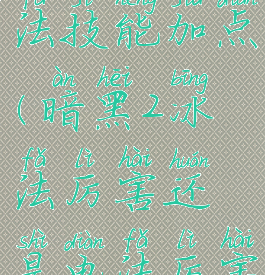 fǎ jì néng jiā diǎn
法技能加点
àn hēi bīng
(暗黑2冰
fǎ lì hài huán
法厉害还
shì diàn fǎ lì hài
是电法厉害